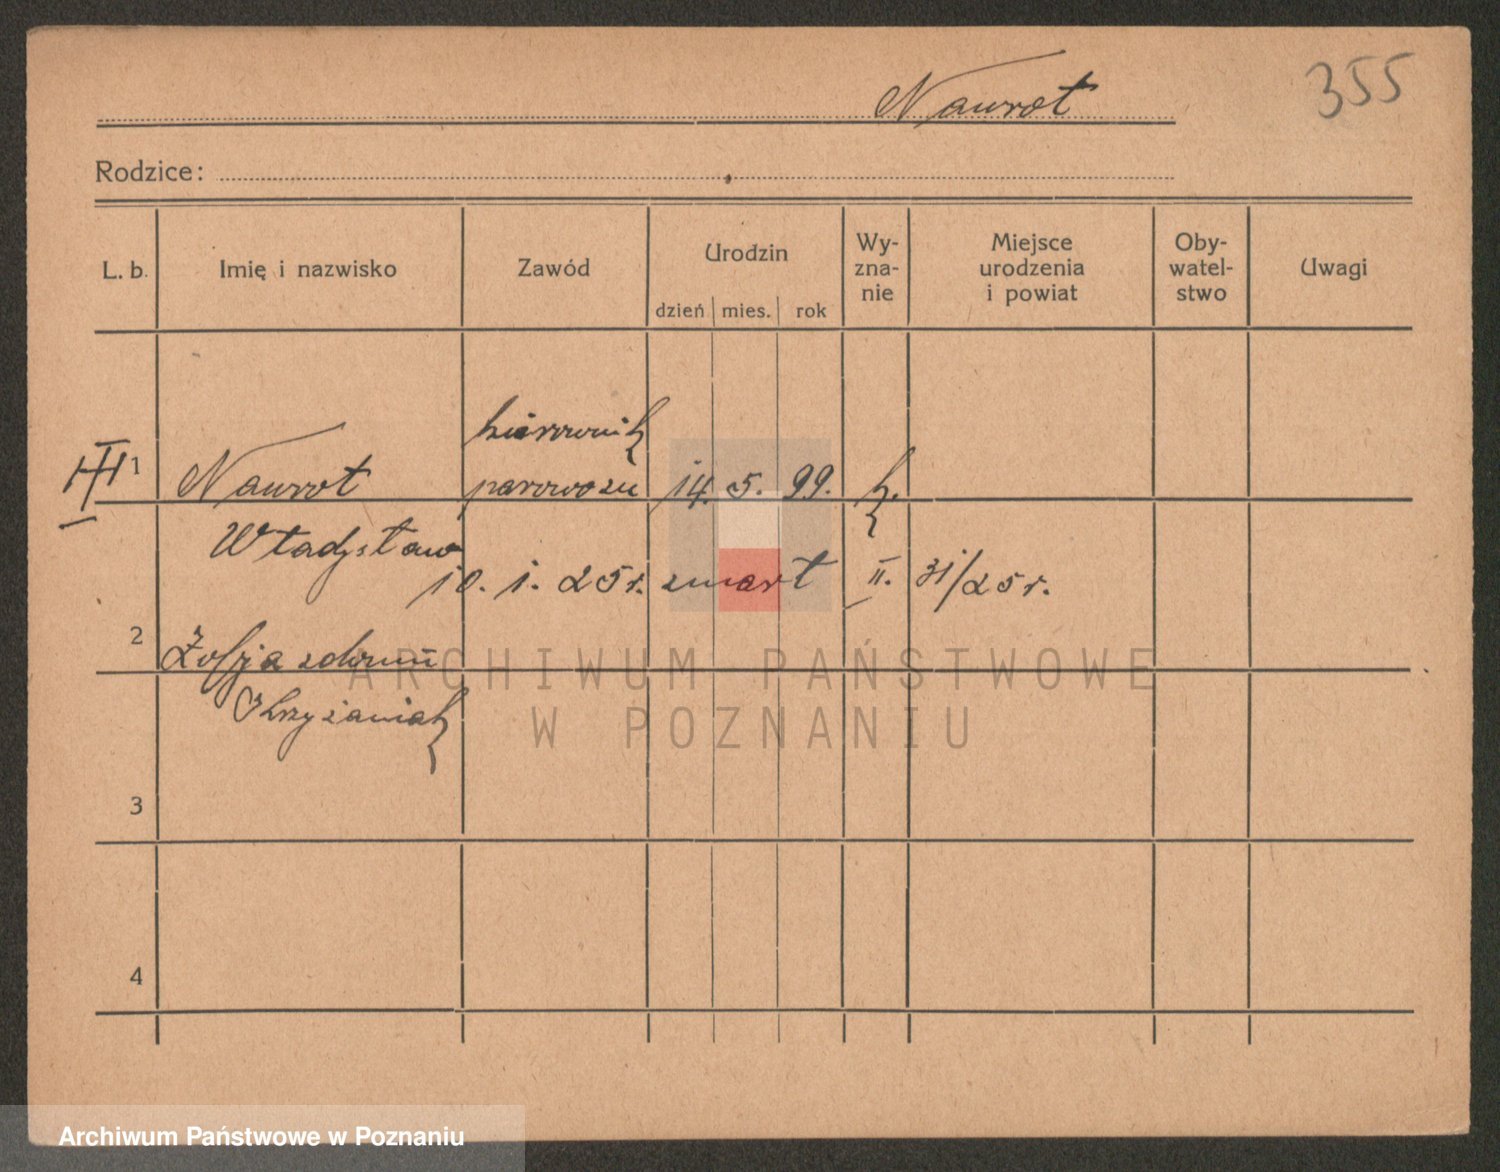 355
Nawrot
Rodzice:
L. b. Imię i nazwisko Zawód Urodzin dzień mies. rok Wy-zna-nie Miejsce urodzenia i powiat Oby-watel-stwo Uwagi
kierownik
III 1 Nawrot parowozu 14. 5. 99. k.
Władysław
10. 1. 25 r. zmart II. 31/25 r.
2 Zofja zdomu
Krzyżaniak
3
4
ARCHIWUM PAŃSTWOWE
W POZNANIU
Archiwum Państwowe w Poznaniu